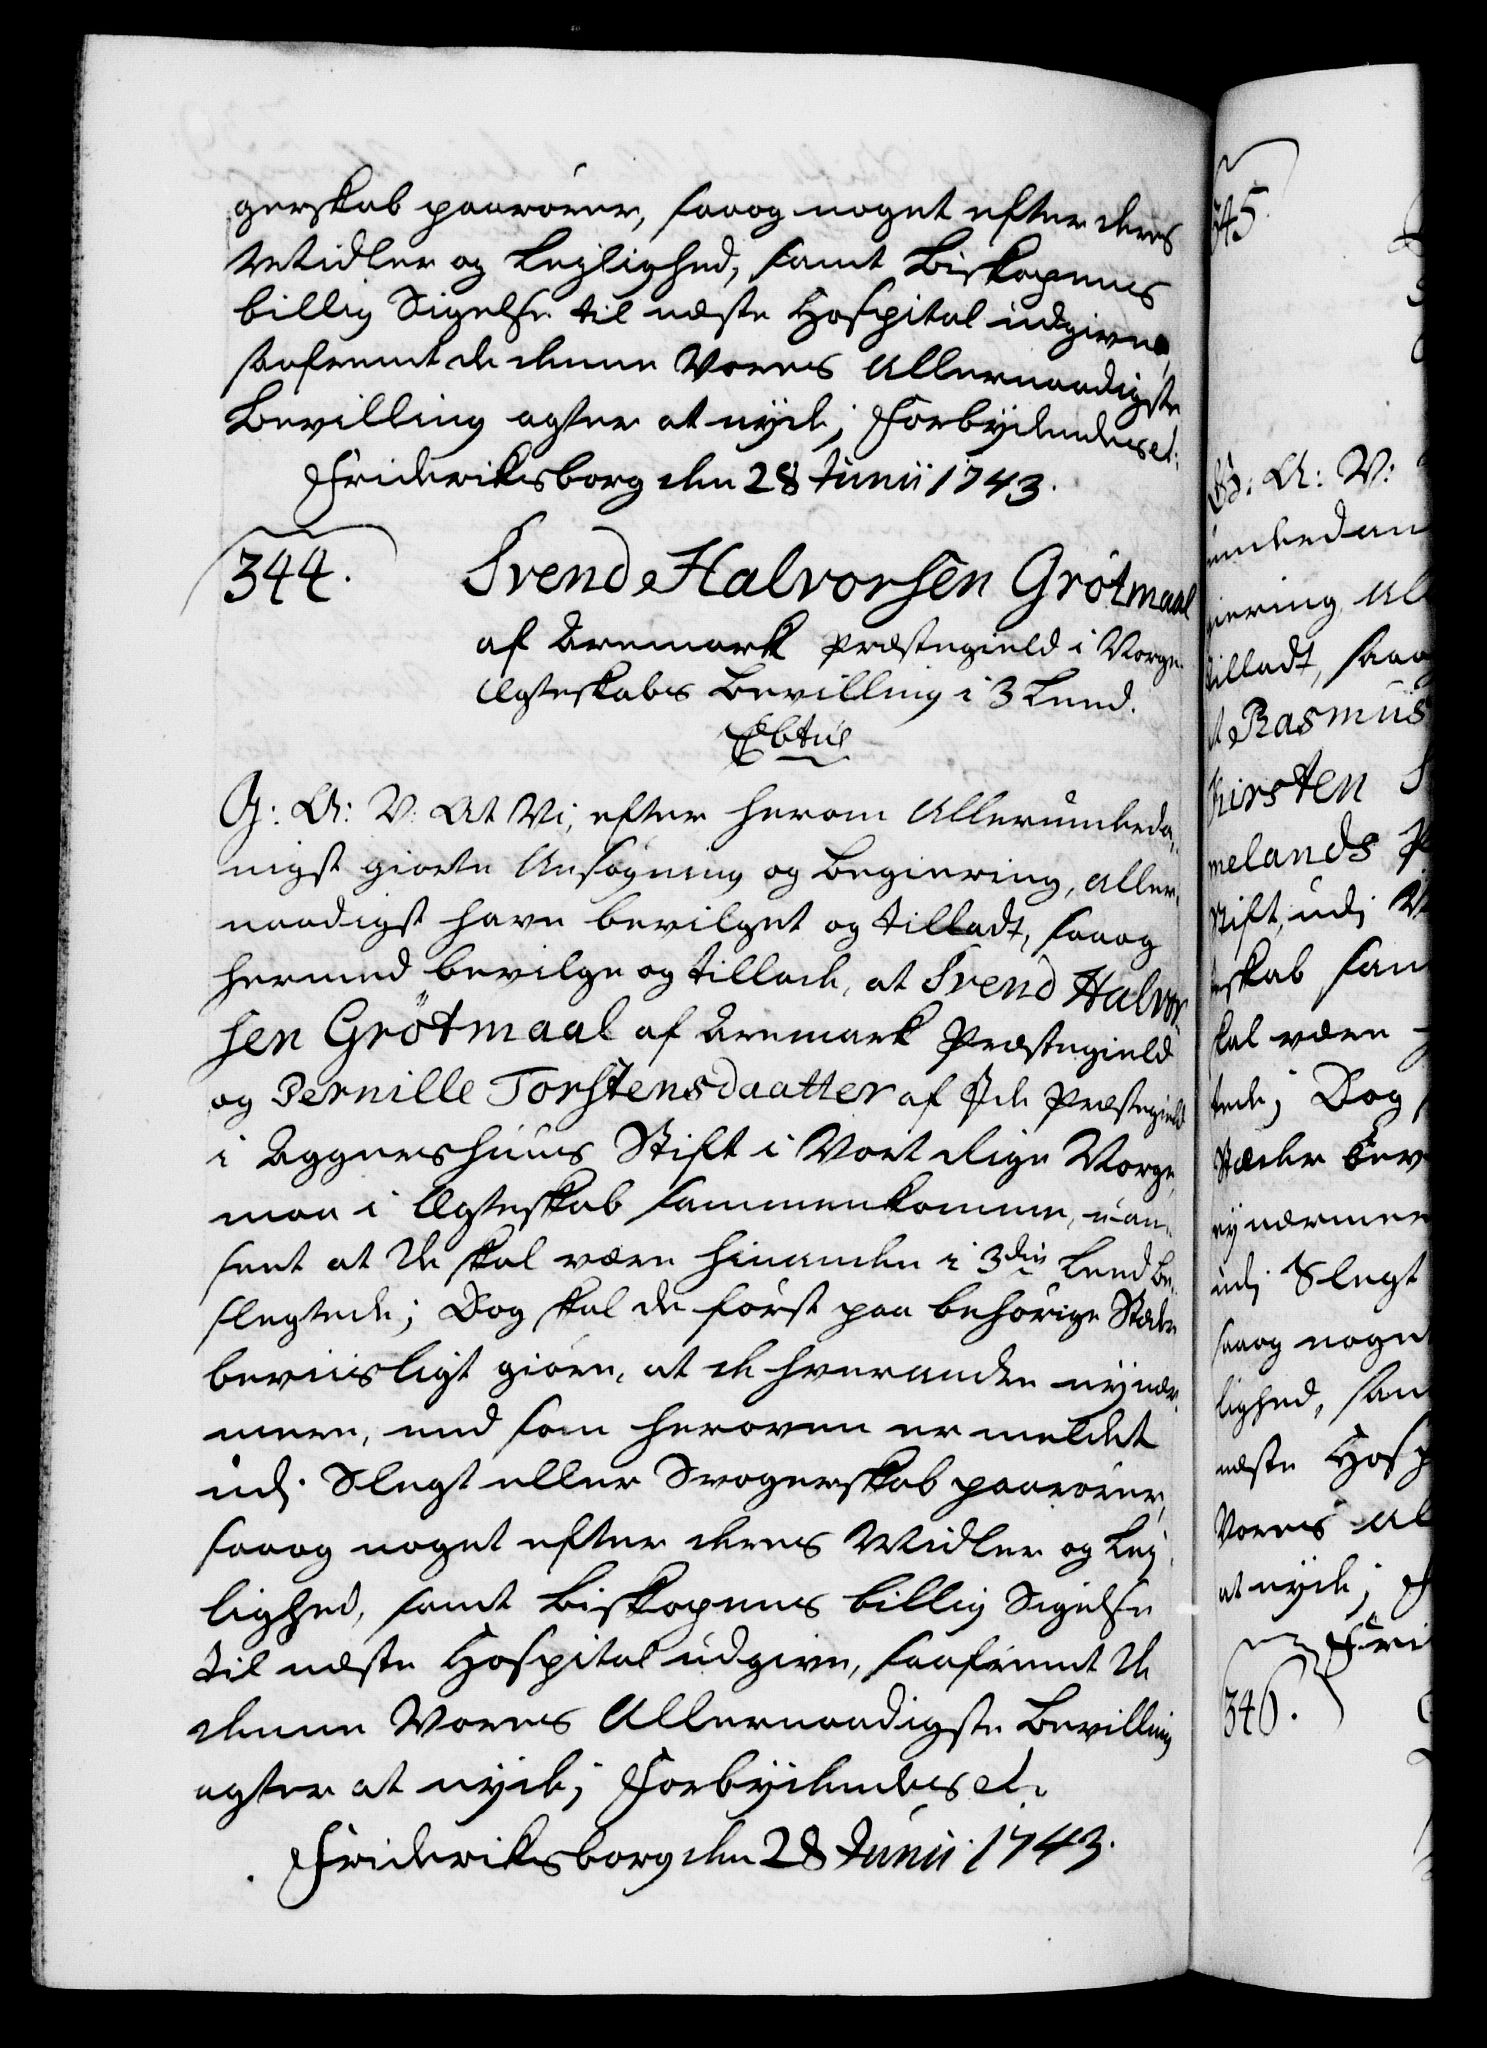 gerskab paarörer, saaog noget efter deres
Midler og Leylighed, samt Biskopens
billig Sigelse til neste Hospital udgive,
saafremt de denne Vores Allernaadigste
Bevilling agter at nyde; Forbydendes et:
Frideriksborg den 28 Junii 1743.
344.
Svend Halvorsen Grötmaal
af Aremark Præstegield i Norge
Ægteskabs Bevilling i 3 Leed.
G: A: V: At Vi, efter herom Allerunderda-
nigst giorte Ansögning og Begiering, aller-
naadigst have bevilget og tilladt, saaog
hermed bevilge og tillade, at Svend Halvor-
sen Grötmaal af Aremark Præstegield
og Pernille Torstensdaatter af Ide Præstegield
i Aggershuus Stift i Vort Rige Norge,
maa i Ægteskab sammenkomme, uan-
seet at de skal være hinanden i 3die Leed be-
slegtede; Dog skal de först paa behörige Stæder
beviisligt giöre, at de hverandre ey nær-
mere, end som heroven er meldet
udj Slegt eller Svogerskab paarörer,
saaog noget efter deres Midler og Ley-
lighed, samt Biskopens billig Sigelse
til neste Hospital udgive, saafremt de
denne Vores Allernaadigste Bevilling
agter at nyde; Forbydendes et:
Frideriksborg den 28 Junii 1743.
345.
G: A: V:
underdan
giering, Al
tilladt, saaog
at Rasmus
Kirsten
melands P
Stift, udj
teskab sam
skal være
tede; Dog
Stæder bev
ey nærmere
udj Slegt
saaog noget
lighed, sam
neste Hosp
Vores Al
at nyde; F
Fri
346.